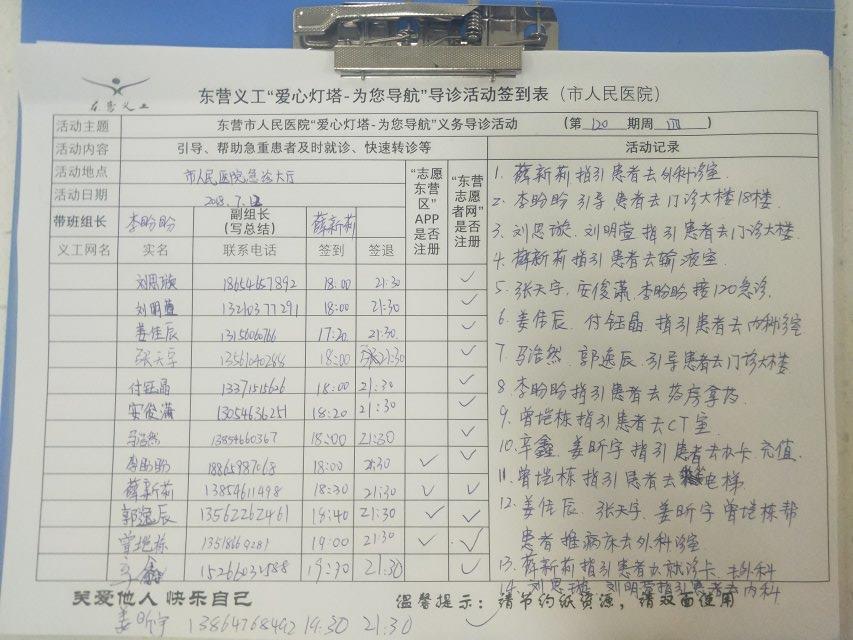 东营义工
东营义工“爱心灯塔-为您导航”导诊活动签到表（市人民医院）
活动主题 东营市人民医院“爱心灯塔-为您导航”义务导诊活动 （第 120 期周 四 ）
活动内容 引导、帮助急重患者及时就诊、快速转诊等 活动记录
活动地点 市人民医院急诊大厅
活动日期 2018.7.12
“志愿东营区”APP是否注册 “东营志愿者网”是否注册
带班组长 李盼盼 副组长（写总结） 薛新莉
义工网名 实名 联系电话 签到 签退
刘思璇 18654657892 18:00 21:30 ✓
刘明萱 13210377291 18:00 21:30 ✓
姜佳辰 1315606766 17:20 21:30 ✓
张天宇 13561040288 18:00 21:30 ✓
付钰晶 13371515626 18:00 21:30 ✓
安俊潇 13054636251 18:20 21:30 ✓
马浩然 1385460367 18:00 21:30 ✓
李盼盼 18865987068 18:00 21:30 ✓ ✓
薛新莉 13854611498 18:30 21:30 ✓ ✓
郭逸辰 13562262461 18:40 21:30 ✓ ✓
曾垲栋 13518669281 19:00 21:30 ✓ ✓
辛鑫 15266031588 19:30 21:30 ✓
1. 薛新莉指引患者去外科诊室.
2. 李盼盼引导患者去门诊大楼18楼.
3. 刘思璇、刘明萱指引患者去门诊大楼.
4. 薛新莉指引患者去输液室.
5. 张天宇,安俊潇,李盼盼接120急诊.
6. 姜佳辰、付钰晶指引患者去内科诊室
7. 马浩然、郭逸辰引导患者去门诊大楼
8. 李盼盼指引患者去药房拿药.
9. 曾垲栋指引患者去CT室.
10. 辛鑫、姜昕宇指引患者去办卡充值.
11. 曾垲栋指引患者去电梯
12. 姜佳辰、张天宇、姜昕宇曾垲栋帮
患者推病床去外科诊室.
13. 薛新莉指引患者办就诊卡 去外科
14. 刘思璇、刘明萱指引患者去内科
关爱他人 快乐自己 温馨提示：请节约纸资源，请双面使用
姜昕宇 13864768492 19:30 21:30 ✓